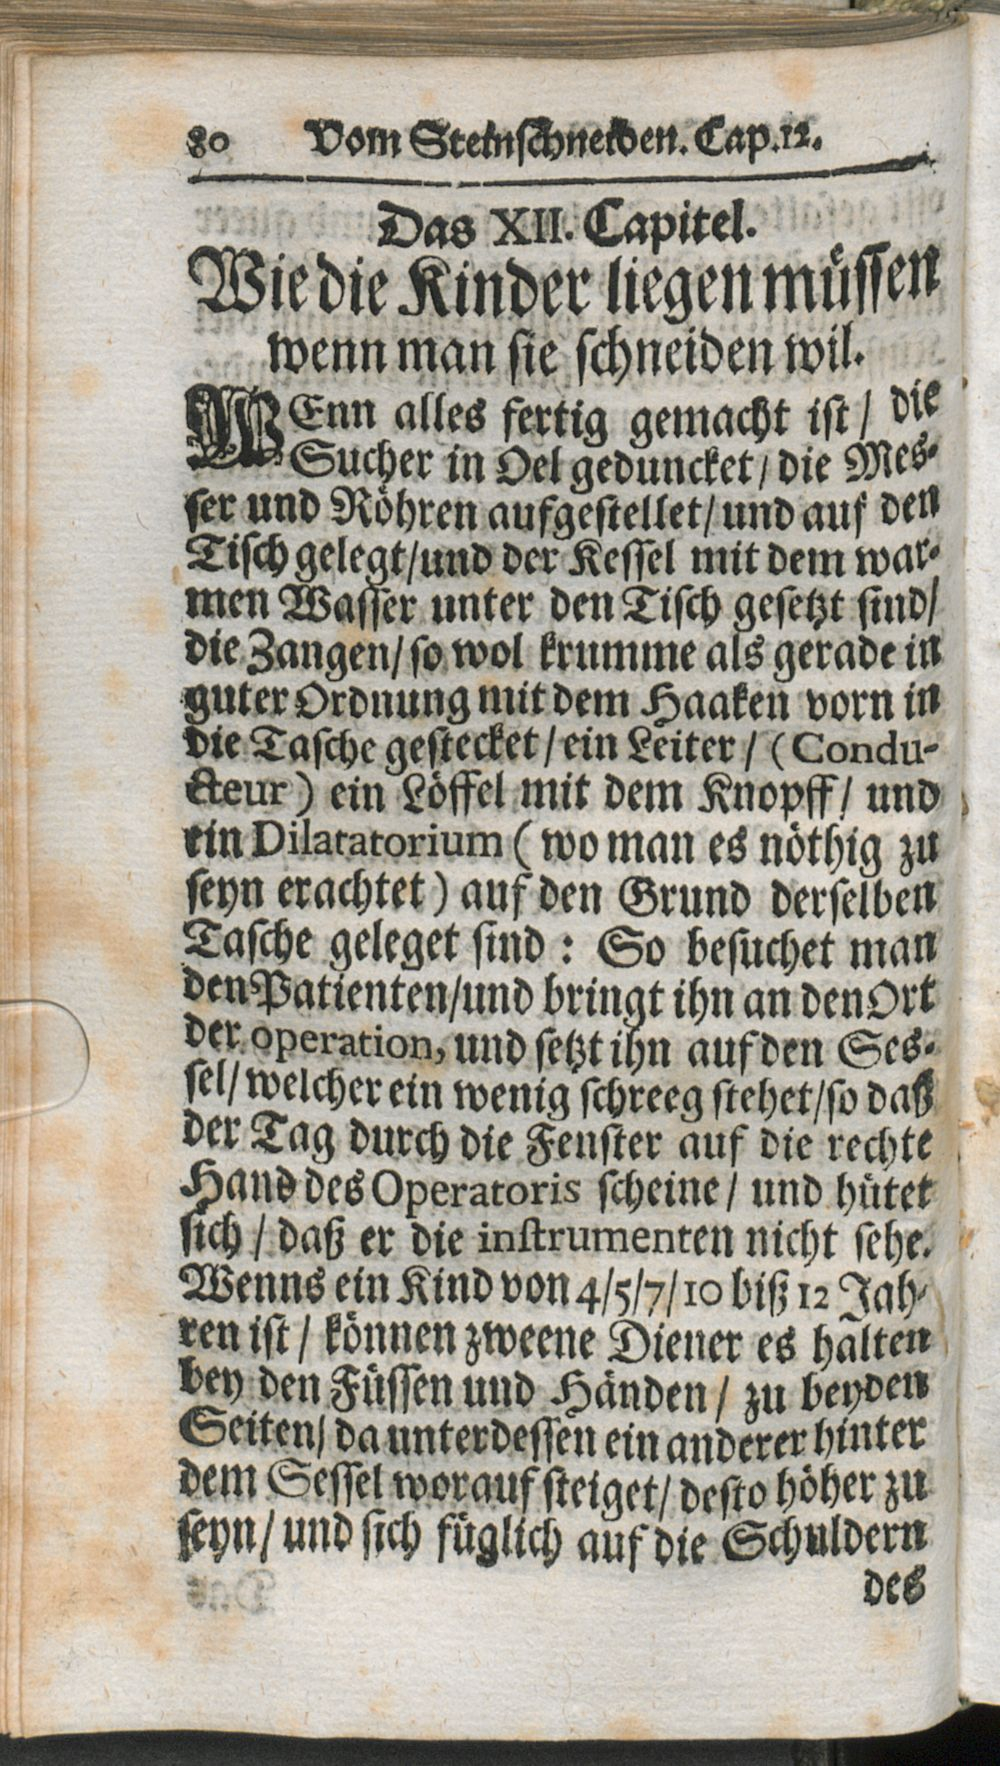 80 Vom Steinschneiden. Cap. 12.
Das XII. Capitel.
Wie die Kinder liegen müssen
wenn man sie schneiden wil.
WEnn alles fertig gemacht ist / die
Sucher in Oel geduncket / die Mes-
ser und Röhren aufgestellet / und auf den
Tisch gelegt / und der Kessel mit dem war-
men Wasser unter den Tisch gesetzt sind /
die Zangen / so wol krumme als gerade in
guter Ordnung mit dem Haaken vorn in
die Tasche gestecket / ein Leiter / (Condu-
cteur) ein Löffel mit dem Knopff / und
ein Dilatatorium (wo man es nöthig zu
seyn erachtet) auf den Grund derselben
Tasche geleget sind : So besuchet man
den Patienten / und bringt ihn an den Ort
der operation, und setzt ihn auf den Ses-
sel / welcher ein wenig schreeg stehet / so daß
der Tag durch die Fenster auf die rechte
Hand des Operatoris scheine / und hütet
sich / daß er die instrumenten nicht sehe.
Wenns ein Kind von 4/5/7/10 biß 12 Jah-
ren ist / können zweene Diener es halten
bey den Füssen und Händen / zu beyden
Seiten / da unterdessen ein anderer hinter
dem Sessel worauf steiget / desto höher zu
seyn / und sich füglich auf die Schuldern
des